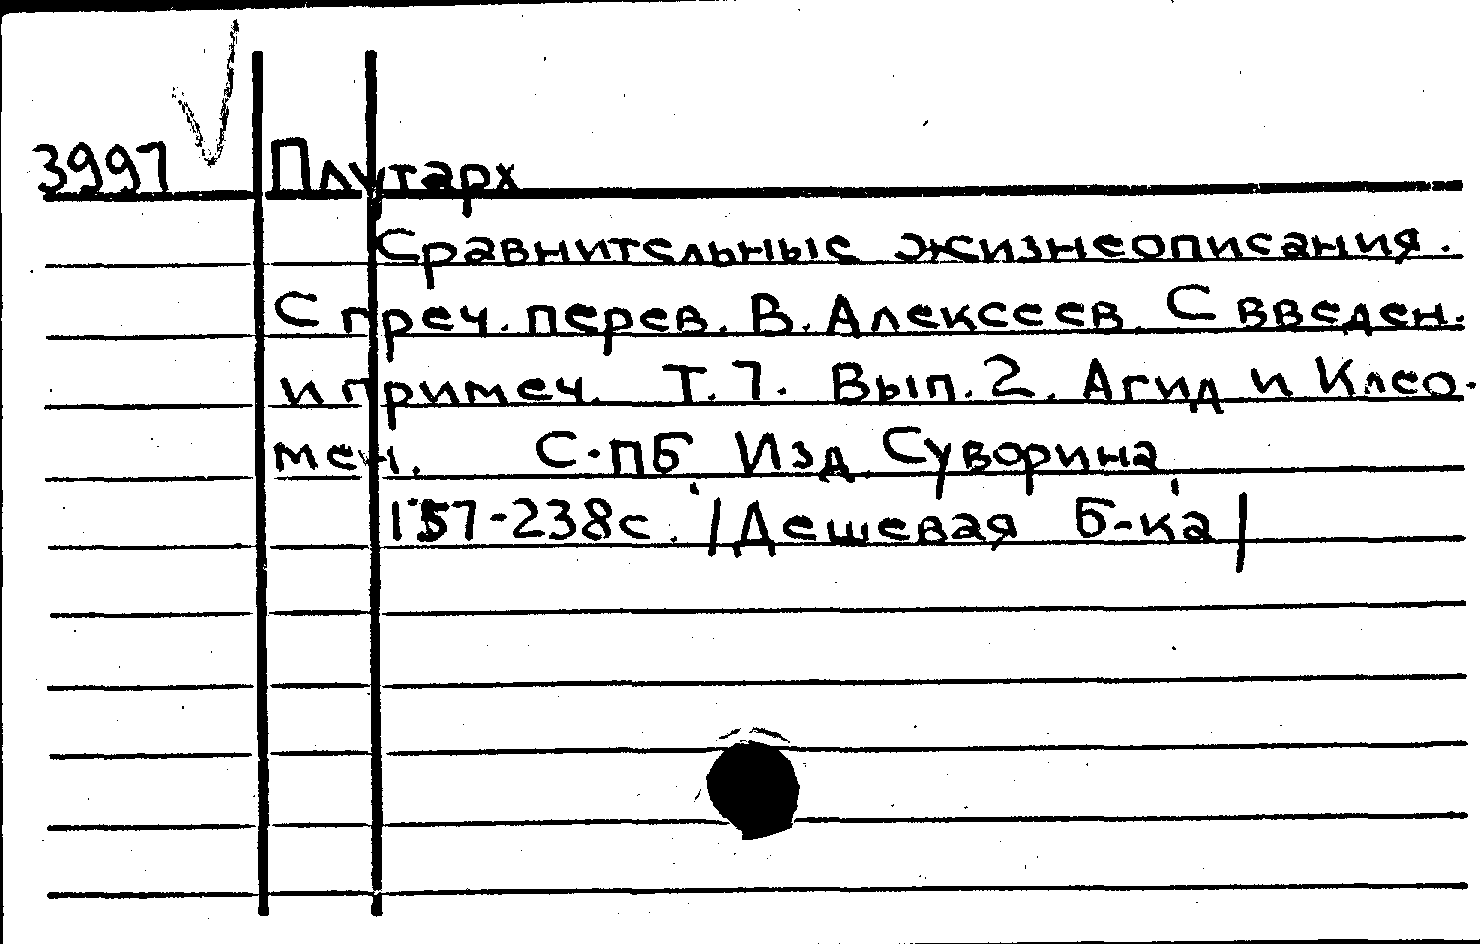 3997 Плутарх
Сравнительные жизнеописания.
С греч. перев. В. Алексеев. С введен.
и примеч. Т. 7. Вып. 2. Агид и Клео-
мен. С-ПБ, Изд. Суворина,
157-238с. /Дешевая Б-ка/